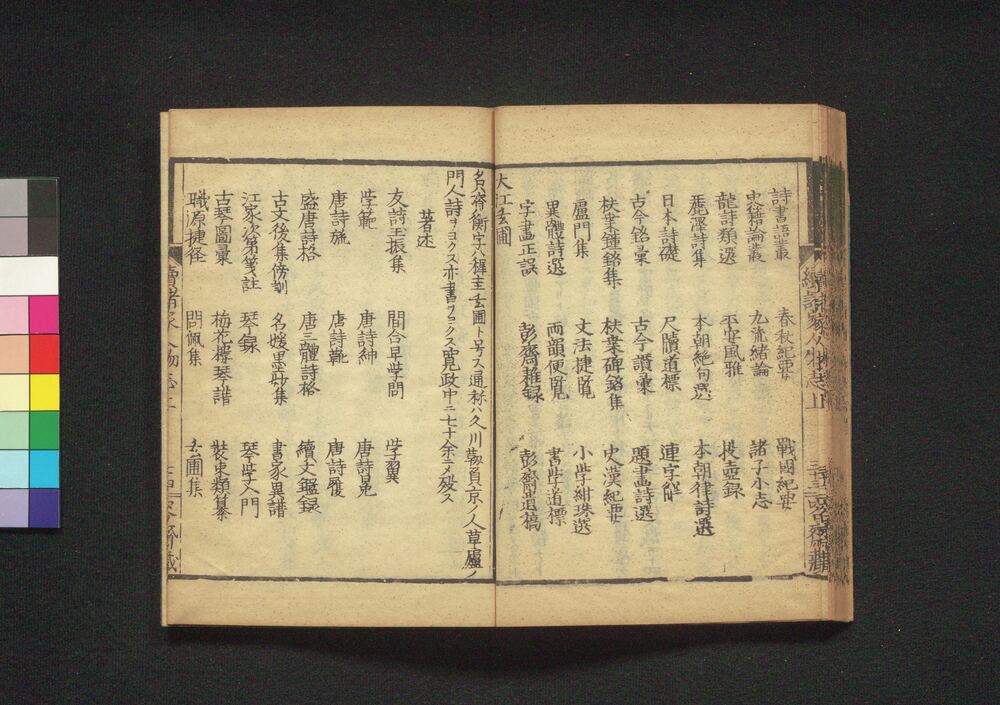 詩書語叢　春秋紀要　戰國紀要
史籍論叢　九流緒論　諸子小志
龍詩類選　平安風雅　投壺録
麗澤詩集　本朝絶句選　本朝律詩選
日本詩礎　尺牘道標　連字解
古今銘彙　古今讚彙　題畫詩選
扶桒鐘銘集　扶桒碑銘集　史漢紀要
盧門集　文法捷覧　小学紺珠選
異體詩選　両韻便覧　書学道標
字畫正誤　彭齋雜録　彭齋遺稿
大江玄圃
名資衡字ハ穉圭玄圃ト号ス通称ハ久川靱負京ノ人草廬ノ
門人詩ヲヨクス亦書ヲヨクス寛政中ニ七十余ニメ殁ス
著述
友詩玉振集　間合早学問　学翼
学範　唐詩紳　唐詩冕
唐詩旒　唐詩鞶　唐詩履
盛唐詩格　唐三體詩格　續文鑑録
古文後集傍訓　名媛墨妙集　書家異譜
江家次第箋註　琴録　琴学入門
古琴圖彙　梅花樓琴譜　裝束類纂
職原捷徑　問佩集　玄圃集